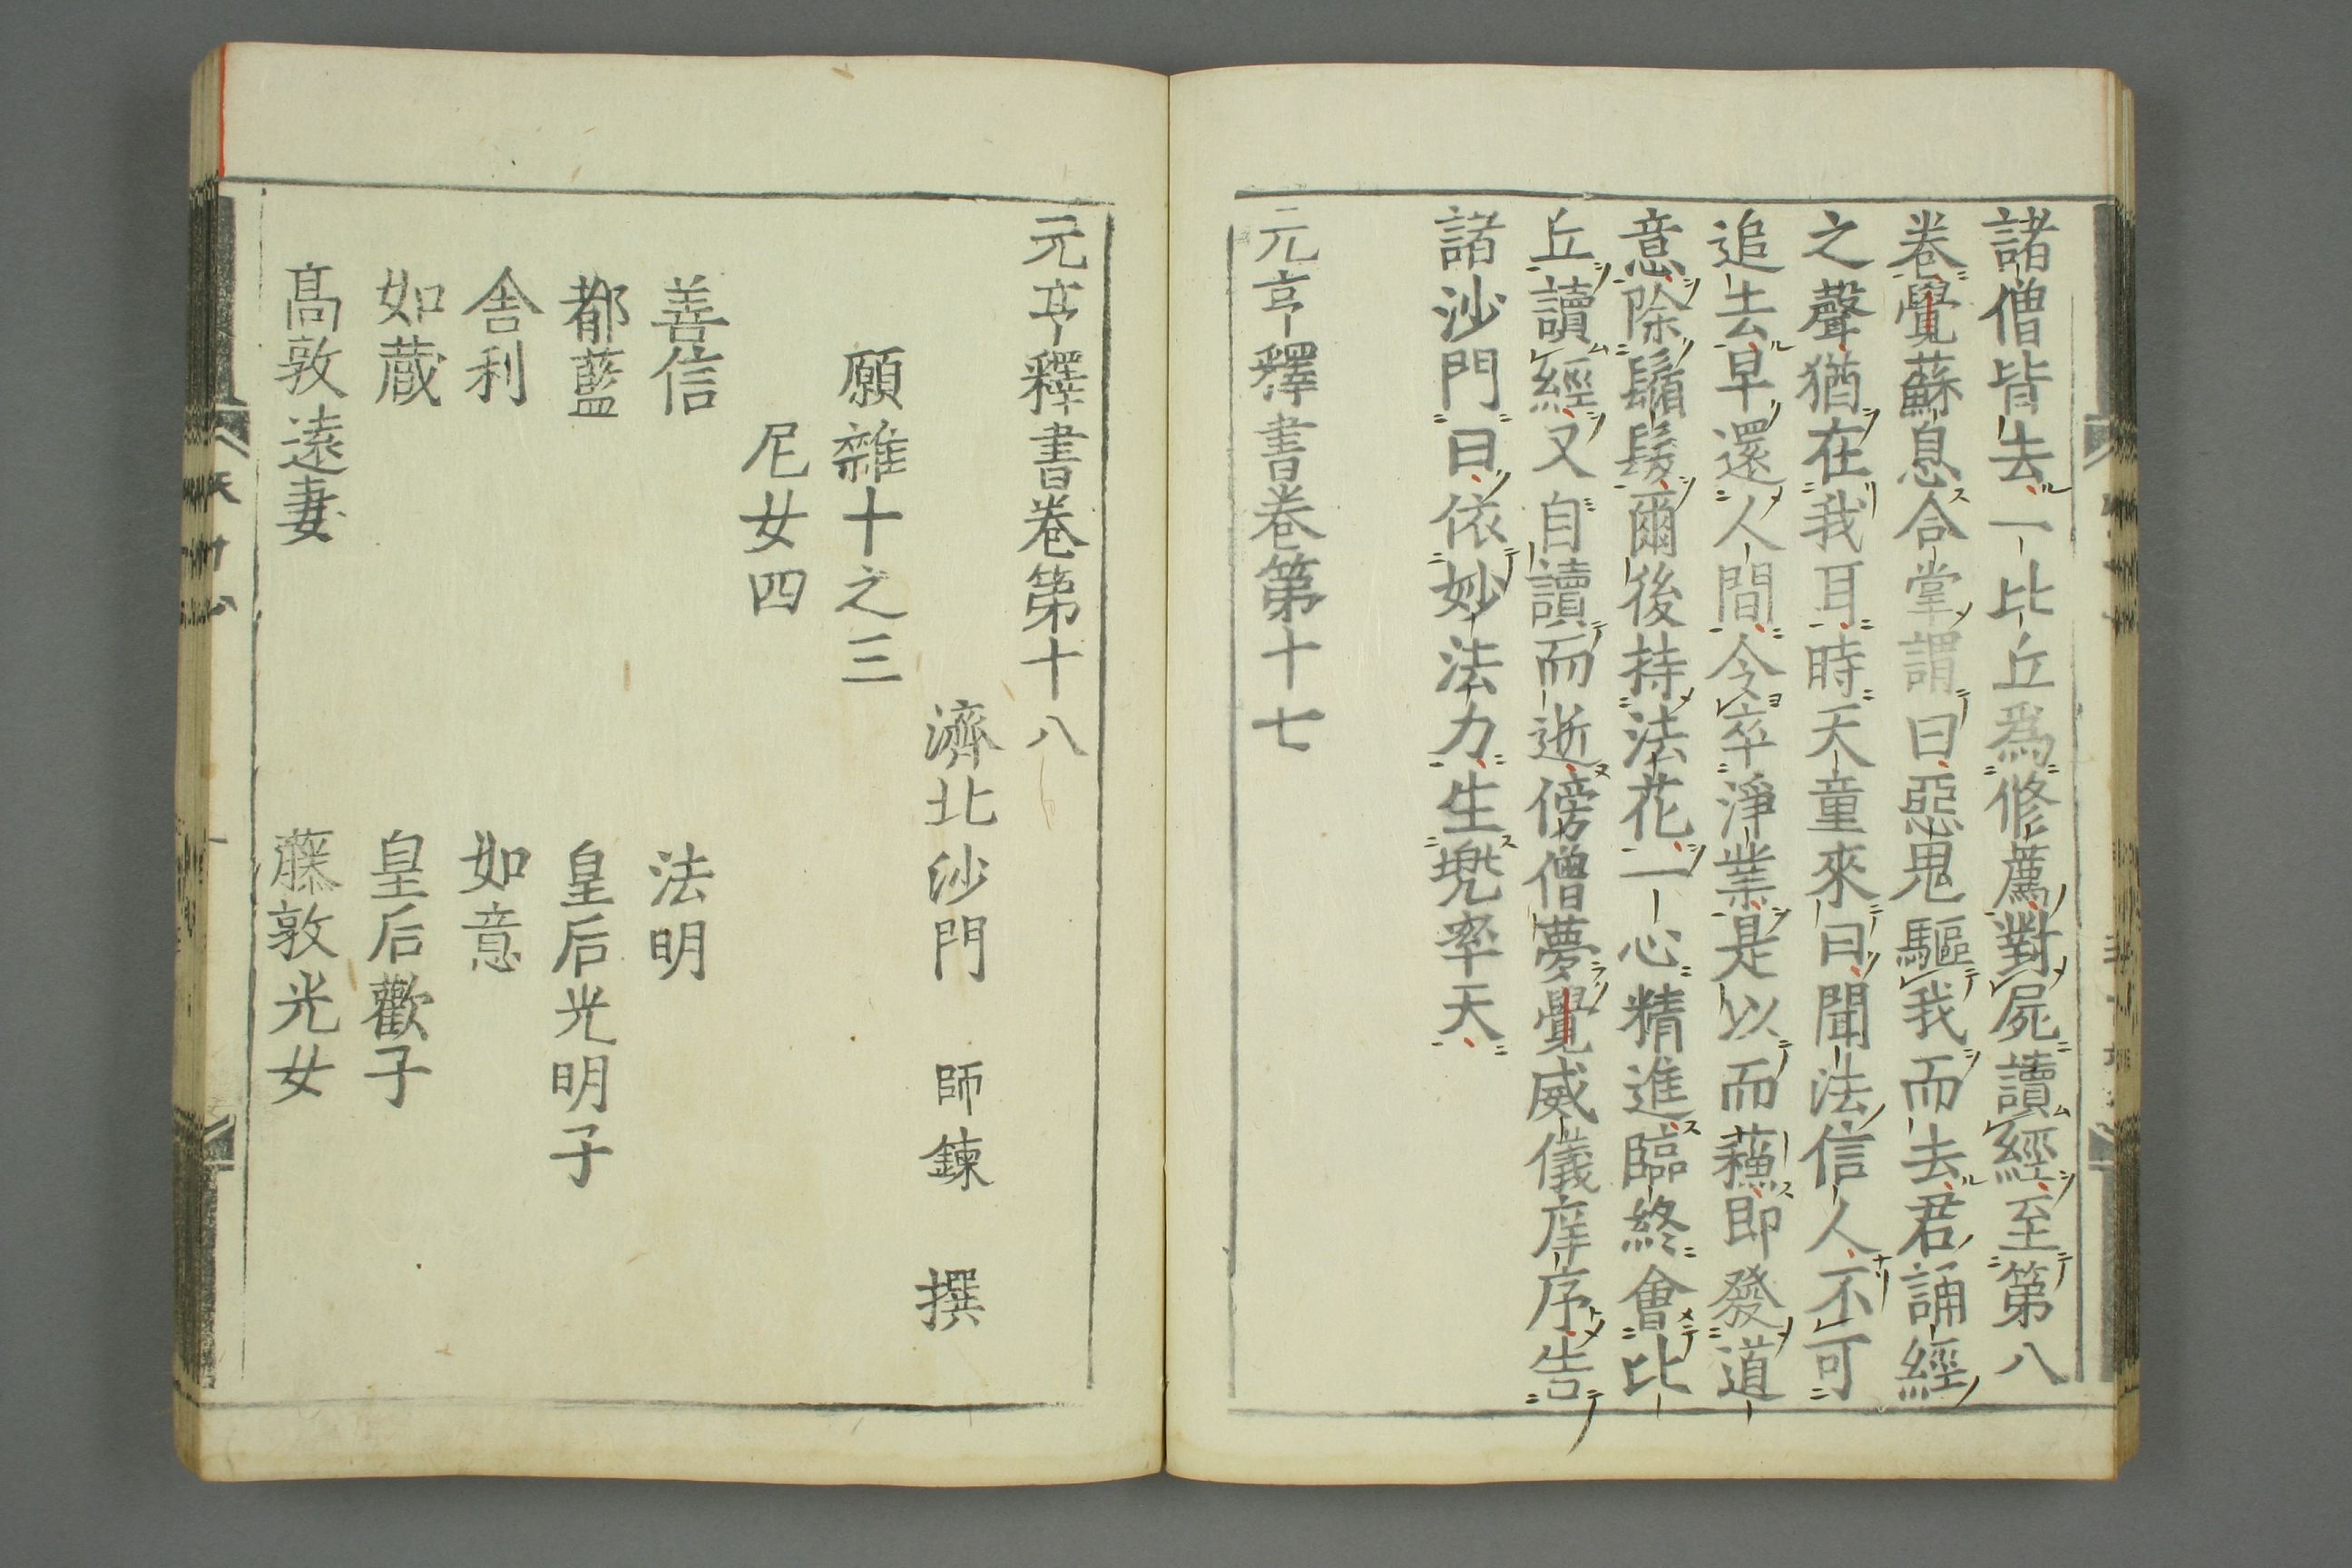 諸僧皆去一比丘爲修薦對屍讀經至第八
卷覺蘇息合掌謂曰惡鬼驅我而去君誦經
之聲猶在我耳時天童來曰聞法信人不可
追去早還人間今卒淨業是以而蘓即發道
意除鬚髮爾後持法花一心精進臨終會比
丘讀經又自讀而逝傍僧夢覺威儀庠序告
諸沙門曰依妙法力生兠率天
元亨釋書卷第十七
元亨釋書卷第十八
濟北沙門　師鍊　撰
願雜十之三
尼女四
善信　法明
都藍　皇后光明子
舎利　如意
如蔵　皇后歡子
髙敦遠妻　藤敦光女